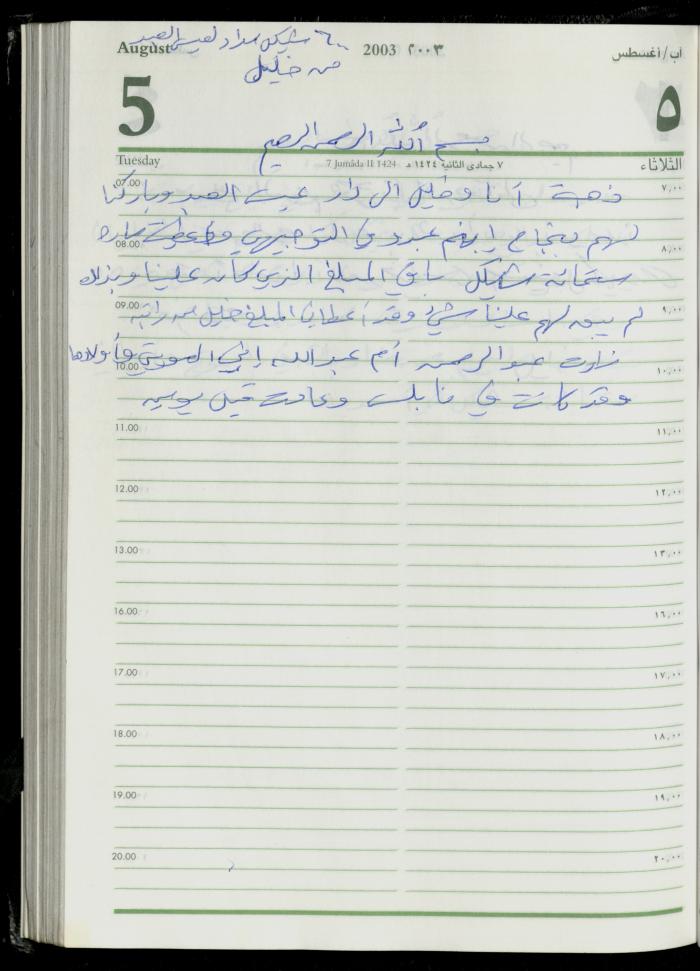 ٦٠٠ شيكل سداد لعيسى العبد
من خليل
August 2003 ٢٠٠٣ آب/أغسطس
5 ٥
بسم الله الرحمن الرحيم
Tuesday 7 Jumâda II 1424 ٧ جمادى الثانية ١٤٢٤ هـ الثلاثاء
07.00 ٧,٠٠
ذهبت أنا وخليل الى دار عيسى العبد وباركنا
لهم بنجاح ابنهم عبد في التوجيهي وأعطيت
08.00 ٨,٠٠
ستمائة شيكل باقي المبلغ الذي كان علينا وبذلك
09.00 ٩,٠٠
لم يبق لهم علينا شيء وقد أعطاني المبلغ خليل من راتبه
زارت عبد الرحمن أم عبدالله وأولادها
10.00 ١٠,٠٠
وقد كانت في نابلس وعادت قبل يومين
11.00 ١١,٠٠
12.00 ١٢,٠٠
13.00 ١٣,٠٠
16.00 ١٦,٠٠
17.00 ١٧,٠٠
18.00 ١٨,٠٠
19.00 ١٩,٠٠
20.00 ٢٠,٠٠